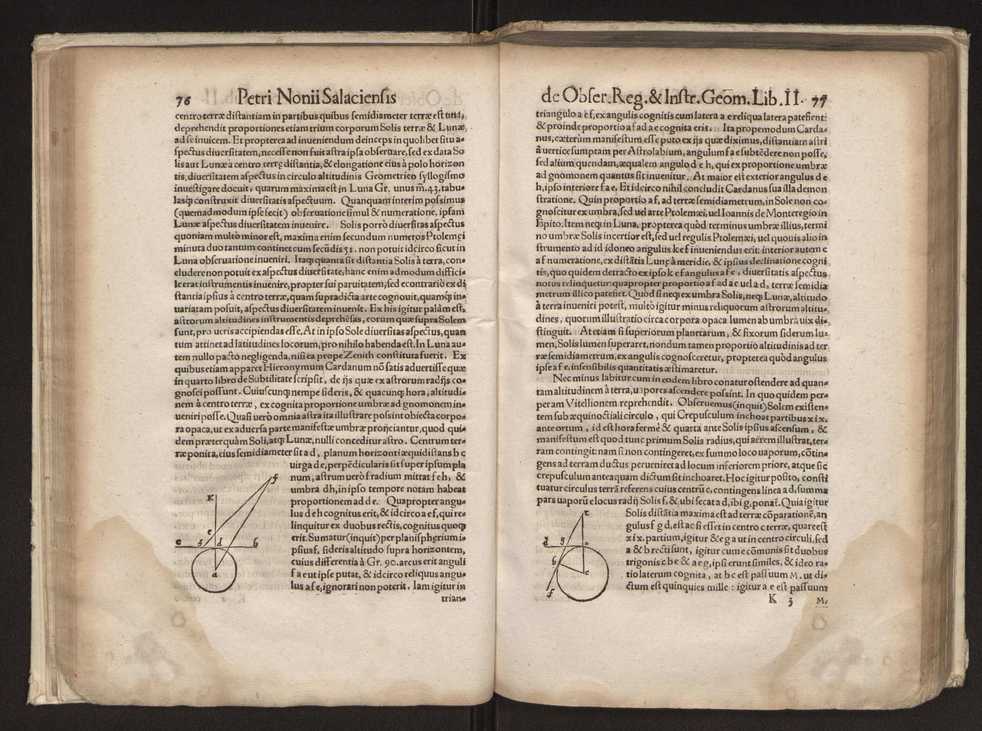 76 Petri Nonii Salaciensis
centro terræ distantiam in partibus quibus semidiameter terræ est una,
deprehendit proportiones etiam trium corporum Solis terræ & Lunæ,
ad se inuicem. Et propterea ad inueniendum deinceps in quolibet situ a-
spectus diuersitatem, necesse non fuit astra ipsa obseruare, sed ex data So
lis aut Lunæ à centro terrę distantia, & elongatione eius à polo horizon
tis, diuersitatem aspectus in circulo altitudinis Geometrico syllogismo
inuestigare docuit, quarum maxima est in Luna Gr. unus m̃. 43. tabu-
lasq́ construxit diuersitatis aspectuum. Quanquam interim possimus
(quemadmodum ipse fecit) obseruatione simul & numeratione, ipsam
Lunæ aspectus diuersitatem inuenire. Solis porrò diuersitas aspectus
quoniam multò minor est, maxima enim secundum numeros Ptolemęi
minuta duo tantum continet cum secũdis 51. non potuit idcirco sicut in
Luna obseruatione inueniri. Itaq́ quanta sit distantia Solis à terra, con-
cludere non potuit ex aspectus diuersitate, hanc enim admodum diffici-
le erat instrumentis inuenire, propter sui paruitatem, sed econtrariò ex di
stantia ipsius à centro terræ, quam supradicta arte cognouit, quamq́ in-
uariatam posuit, aspectus diuersitatem inuenit. Ex his igitur palàm est,
astrorum altitudines instrumentis deprehẽsas, eorum quæ supra Solem
sunt, pro ueris accipiendas esse. At in ipso Sole diuersitas aspectus, quan
tum attinet ad latitudines locorum, pro nihilo habenda est. In Luna au-
tem nullo pacto negligenda, nisi ea prope Zenith constituta fuerit. Ex
quibus etiam apparet Hieronymum Cardanum nõ satis aduertisse quæ
in quarto libro de Subtilitate scripsit, de ijs quæ ex astrorum radijs co-
gnosci possunt. Cuiuscunq́ nempe sideris, & quacunq́ hora, altitudi-
nem à centro terræ, ex cognita proportione umbræ ad gnomonem in-
ueniri posse. Quasi uerò omnia astra ita illustrare possint obiecta corpo-
ra opaca, ut ex aduersa parte manifestæ umbræ projiciantur, quod qui-
dem præterquàm Soli, atq́ Lunæ, nulli conceditur astro. Centrum ter-
ræ ponit a, eius semidiameter sit a d, planum horizonti æquidistans b c
uirga d e, perpẽdicularis sit super ipsum pla
num, astrum uerò f radium mittat f e h, &
umbra d h, in ipso tempore notam habeat
proportionem ad d e. Quapropter angu-
lus d e h cognitus erit, & idcirco a e f, qui re-
linquitur ex duobus rectis, cognitus quoq́
erit. Sumatur (inquit) per planisphęrium i-
psius f, sideris altitudo supra horizontem,
cuius differentia à Gr. 90. arcus erit anguli
f a e ut ipse putat, & idcirco reliquus angu-
lus a f e, ignorari non poterit. Iam igitur in
trian-
k
f
e
c
h
d
b
a
de Obser. Reg. & Instr. Geom. Lib. II. 77
triangulo a e f, ex angulis cognitis cum latera a e reliqua latera patefient:
& proinde proportio a f ad a e cognita erit. Ita propemodum Carda-
nus, cæterùm manifestum esse puto ex ijs quæ diximus, distantiam astri
à uertice sumptam per Astrolabium, angulum f a e subtẽdere non posse,
sed alium quendam, æqualem angulo d e h, qui ex proportione umbræ
ad gnomonem quantus sit inuenitur. At maior est exterior angulus d e
h, ipso interiore f a e. Et idcirco nihil concludit Cardanus sua illa demon
stratione. Quin proportio a f, ad terræ semidiametrum, in Sole non co-
gnoscitur ex umbra, sed uel arte Ptolemæi, uel Ioannis de Monteregio in
Epito. Item neq́ in Luna, propterea quòd terminus umbræ illius, termi
no umbræ Solis incertior est, sed uel regulis Ptolemæi, uel quouis alio in
strumento ad id idoneo angulus k e f inueniendus erit: interior autem e
a f numeratione, ex distãtia Lunę à meridie, & ipsius declinatione cogni
tis, quo quidem detracto ex ipso k e f angulus a f e, diuersitatis aspectus
notus relinquetur: quapropter proportio a f ad a e uel a d, terræ semidia
metrum illico patebit. Quòd si neq́ ex umbra Solis, neq́ Lunæ, altitudo
à terra inueniri potest, multò igitur minus reliquorum astrorum altitu-
dines, quorum illustratio circa corpora opaca lumen ab umbra uix di-
stinguit. At etiam si superiorum planetarum, & fixorum siderum lu-
men, Solis lumen superaret, non dum tamen proportio altitudinis ad ter
ræ semidiametrum, ex angulis cognosceretur, propterea quòd angulus
ipse a f e, insensibilis quantitatis æstimaretur.
Nec minus labitur cum in eodem libro conatur ostendere ad quan-
tam altitudinem à terra, uapores ascendere possint. In quo quidem per-
peram Vitellionem reprehendit. Obseruemus (inquit) Solem existen-
tem sub æquinoctiali circulo, qui Crepusculum inchoat partibus xix.
ante ortum, id est hora fermè & quarta ante Solis ipsius ascensum, &
manifestum est quod tunc primum Solis radius, qui aërem illustrat, ter-
ram contingit: nam si non contingeret, ex summo loco uaporum, cõtin-
gens ad terram ductus perueniret ad locum inferiorem priore, atque sic
crepusculum antea quam dictum sit inchoaret. Hoc igitur posito, consti
tuatur circulus terrã referens cuius centrũ c, contingens linea a d, summa
pars uaporũ e locus radij Solis f, & ubi secat a d, ibi g, ponat̃. Quia igitur
Solis distãtia maxima est ad terræ cõparationẽ, an
gulus f g d, est ac si esset in centro c terræ, quare est
xix. partium, igitur & e g a ut in centro circuli, sed
a & b recti sunt, igitur cum e cõmunis sit duobus
trigonis c b e & a e g, ipsi erunt similes, & ideo ra-
tio laterum cognita, at b c est passuum M. ut di-
ctum est quinquies mille: igitur a e est passuum
K 3 M,
e
d
g
a
b
c
f